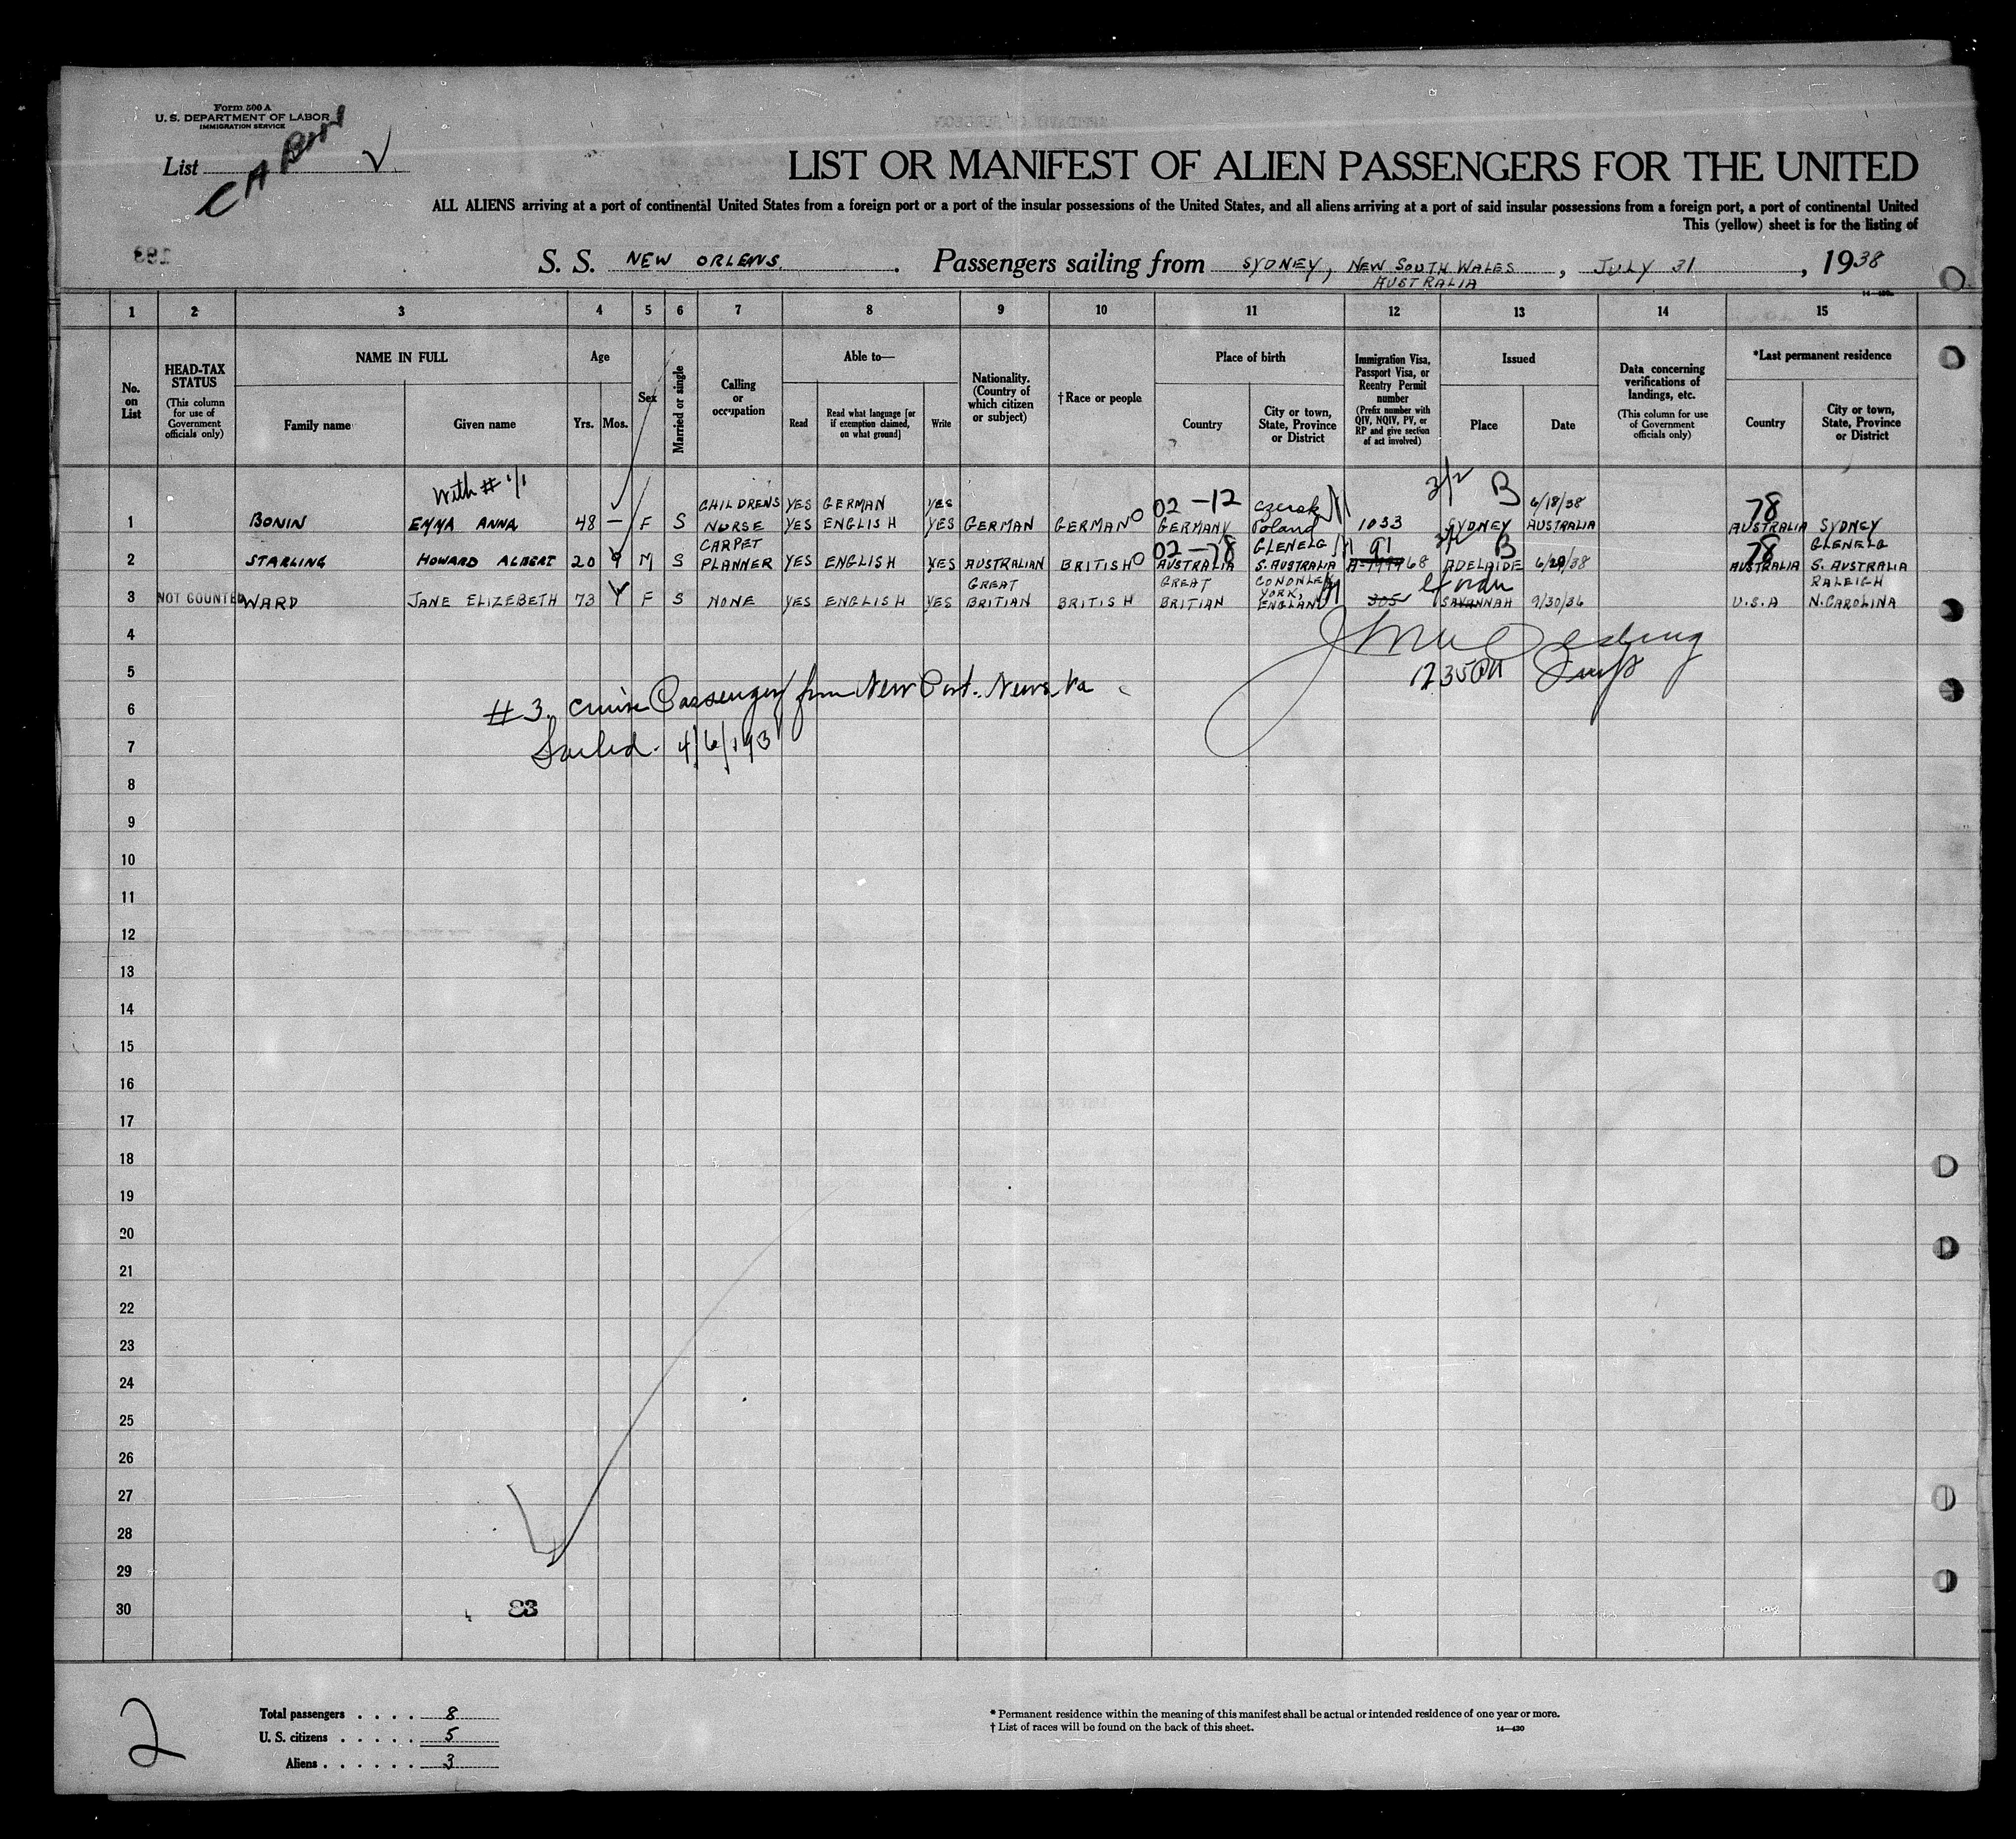 Form 500 A
U. S. DEPARTMENT OF LABOR
IMMIGRATION SERVICE
List CABIN
LIST OR MANIFEST OF ALIEN PASSENGERS FOR THE UNITED
ALL ALIENS arriving at a port of continental United States from a foreign port or a port of the insular possessions of the United States, and all aliens arriving at a port of said insular possessions from a foreign port, a port of continental United
This (yellow) sheet is for the listing of
S. S. NEW ORLENS. Passengers sailing from SYDNEY, NEW SOUTH WALES, JULY 31, 1938
AUSTRALIA
1 2 3 4 5 6 7 8 9 10 11 12 13 14 15
No. on List
HEAD-TAX STATUS
(This column for use of Government officials only)
NAME IN FULL
Family name Given name
Age
Yrs. Mos.
Sex
Married or single
Calling or occupation
Able to—
Read
Read what language [or if exemption claimed, on what ground]
Write
Nationality. (Country of which citizen or subject)
†Race or people
Place of birth
Country
City or town, State, Province or District
Immigration Visa, Passport Visa, or Reentry Permit number
(Prefix number with QIV, NQIV, PV, or RP and give section of act involved)
Issued
Place Date
Data concerning verifications of landings, etc.
(This column for use of Government officials only)
*Last permanent residence
Country
City or town, State, Province or District
With # 1/1
CHILDRENS YES GERMAN YES 02 -12 Czersk 3/2 B 6/18/38 78
1 BONIN EMMA ANNA 48 — F S NURSE YES ENGLISH YES GERMAN GERMAN GERMANY Poland 1033 SYDNEY AUSTRALIA AUSTRALIA SYDNEY
CARPET 02 -78 GLENELG 91 3/2 B 78 GLENELG
2 STARLING HOWARD ALBERT 20 9 M S PLANNER YES ENGLISH YES AUSTRALIAN BRITISH AUSTRALIA S. AUSTRALIA 68 ADELAIDE 6/20/38 AUSTRALIA S. AUSTRALIA
GREAT GREAT YORK, RALEIGH
3 NOT COUNTED WARD JANE ELIZEBETH 73 F S NONE YES ENGLISH YES BRITIAN BRITISH BRITIAN ENGLAND 305 SAVANNAH 9/30/36 U.S.A N. CAROLINA
4
5
1235 PM
#3. cruise Passenger from New Port. News Va
6
Sailed. 4/6/193
7
8
9
10
11
12
13
14
15
16
17
18
19
20
21
22
23
24
25
26
27
28
29
30
83
2
Total passengers . . . . 8
U. S. citizens . . . . . 5
Aliens . . . . . . 3
* Permanent residence within the meaning of this manifest shall be actual or intended residence of one year or more.
† List of races will be found on the back of this sheet. 14—430